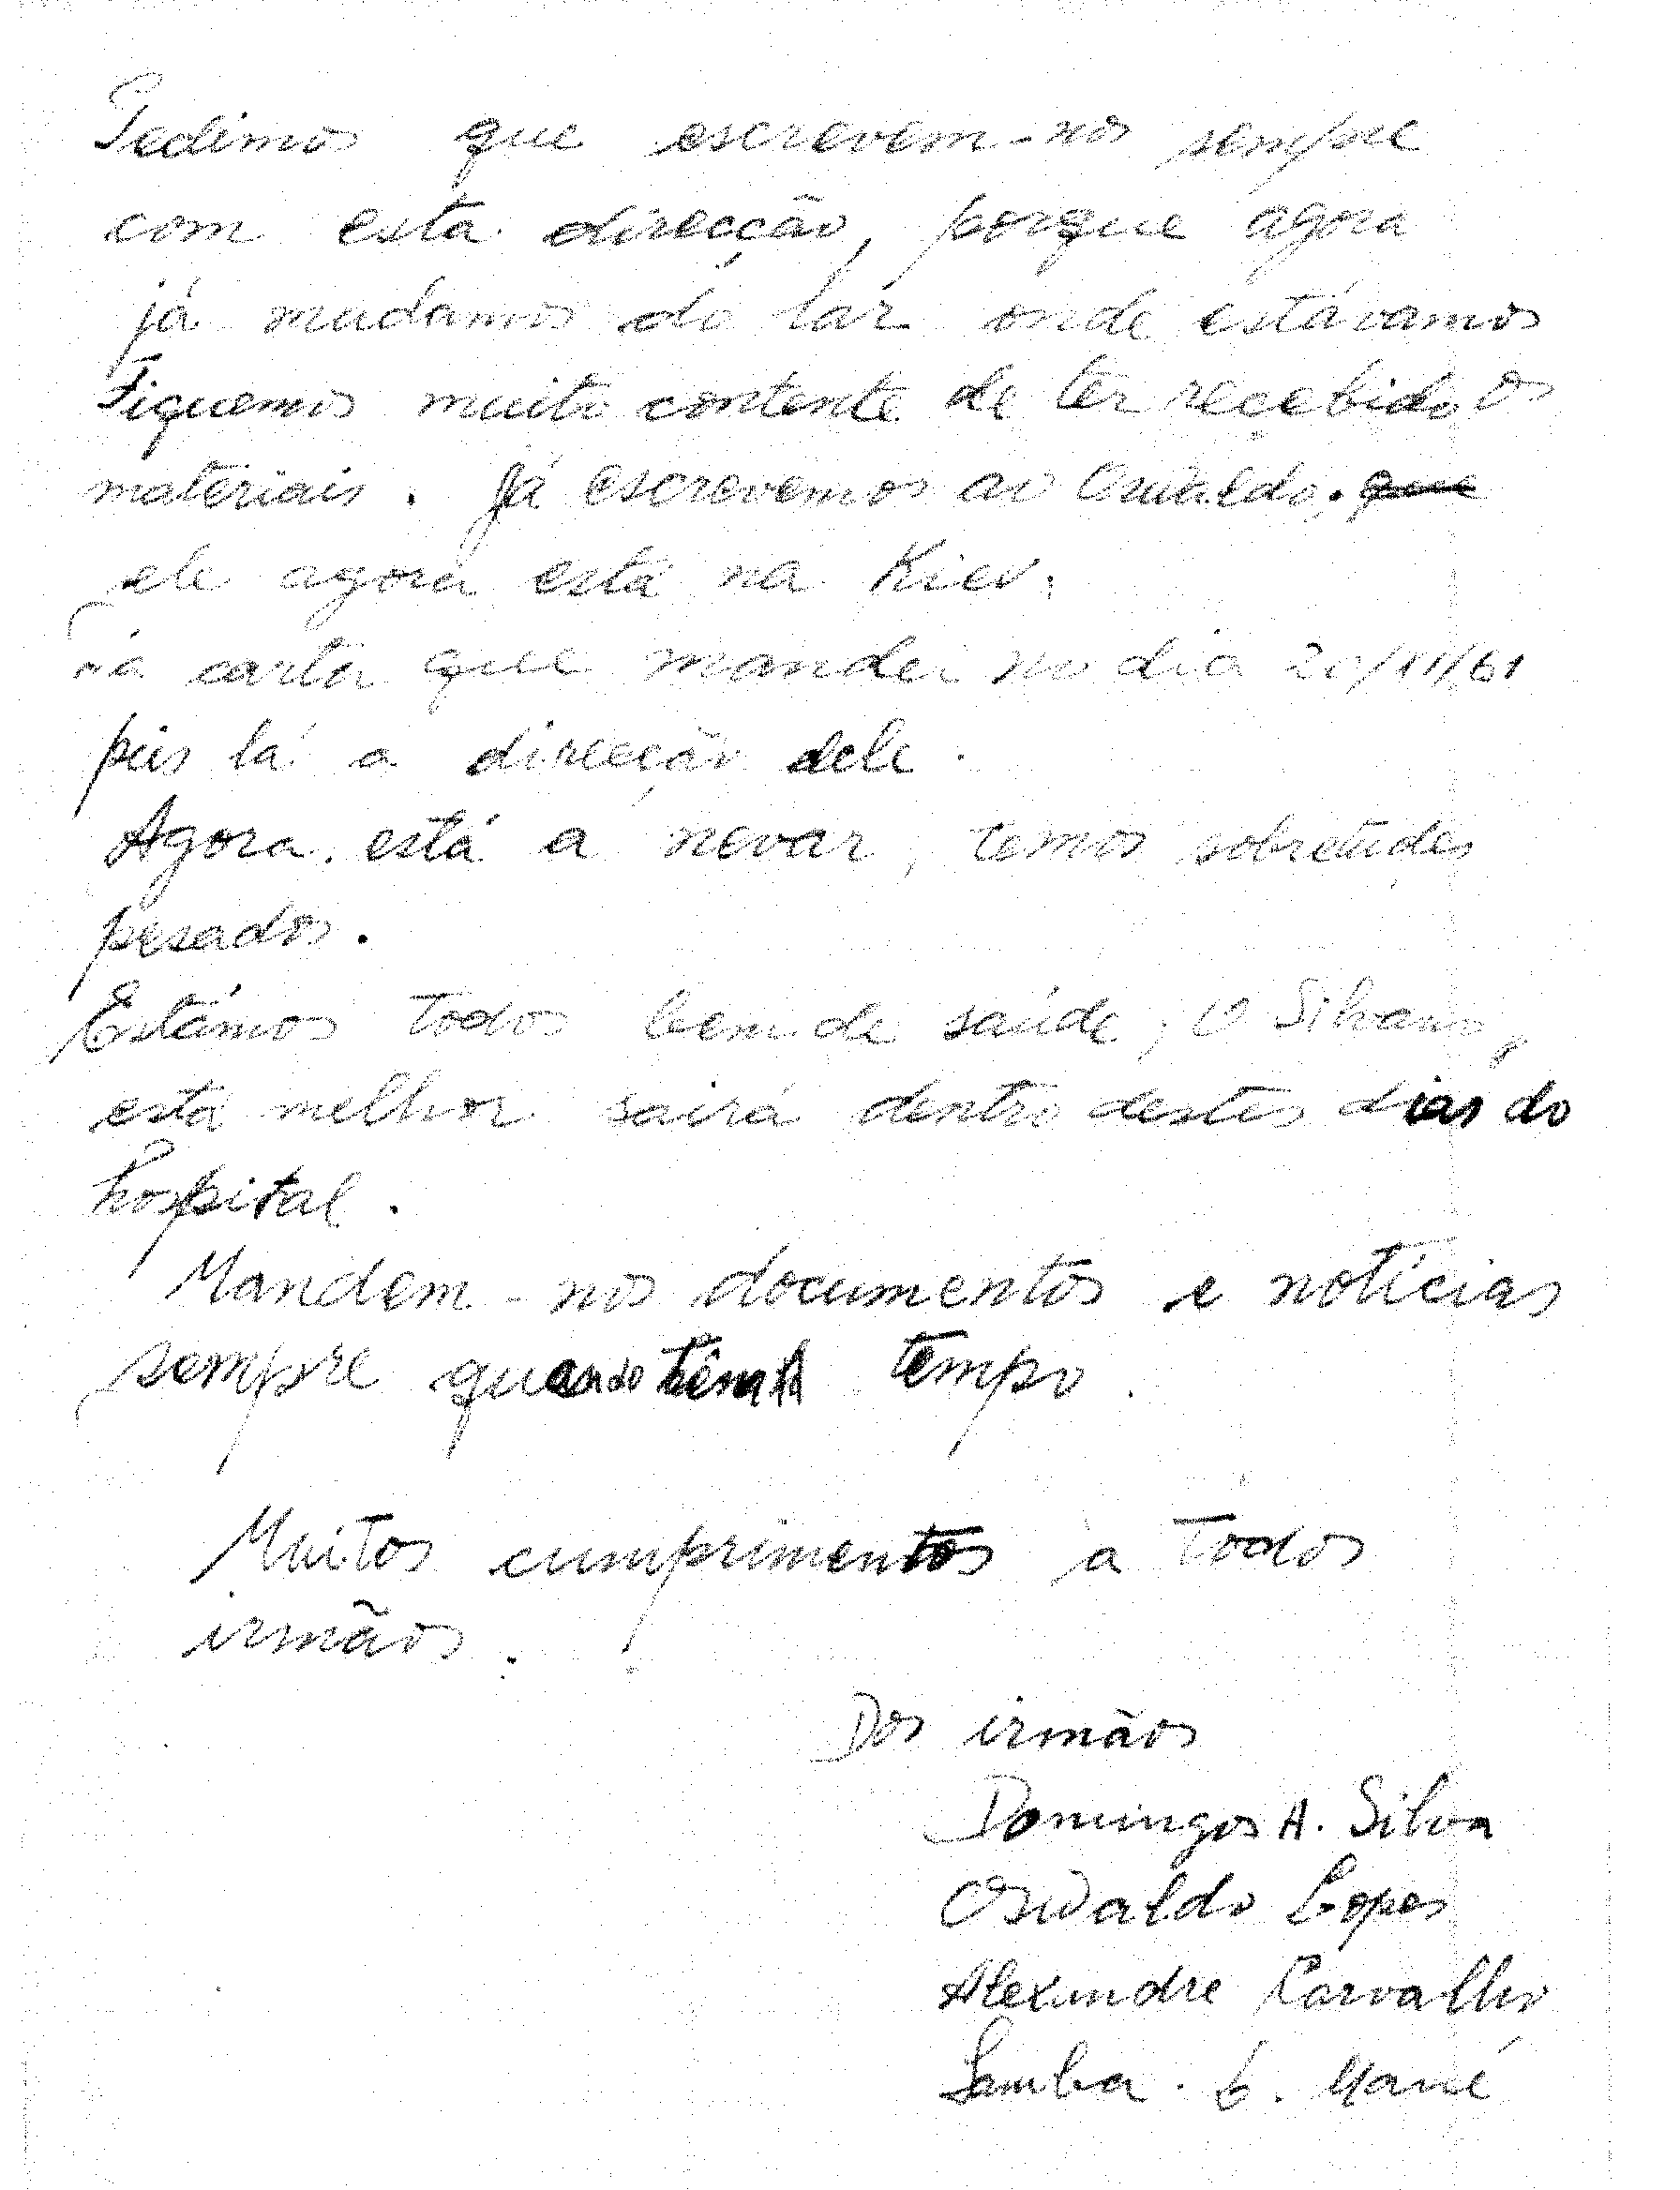 Pedimos que escrevem-nos sempre
com esta direcção, porque agora
já mudamos do lar onde estávamos
Fiquemos muito contente de ter recebido os
materiais. Já escrevemos ao Oswaldo. que
ele agora está na Kiev.
na carta que mandei no dia 20/11/61
pus lá a direcção dele.
Agora está a nevar, temos sobretudes
pesados.
Estámos todos bem de saúde, O Silvano,
está melhor sairá dentro destes dias do
hospital.
Mandem-nos documentos e notícias
sempre quando tempo.
Muitos cumprimentos a todos
irmãos.
Dos irmãos
Domingos A. Silva
Oswaldo Lopes
Alexandre Carvalho
Samba. L. Mané